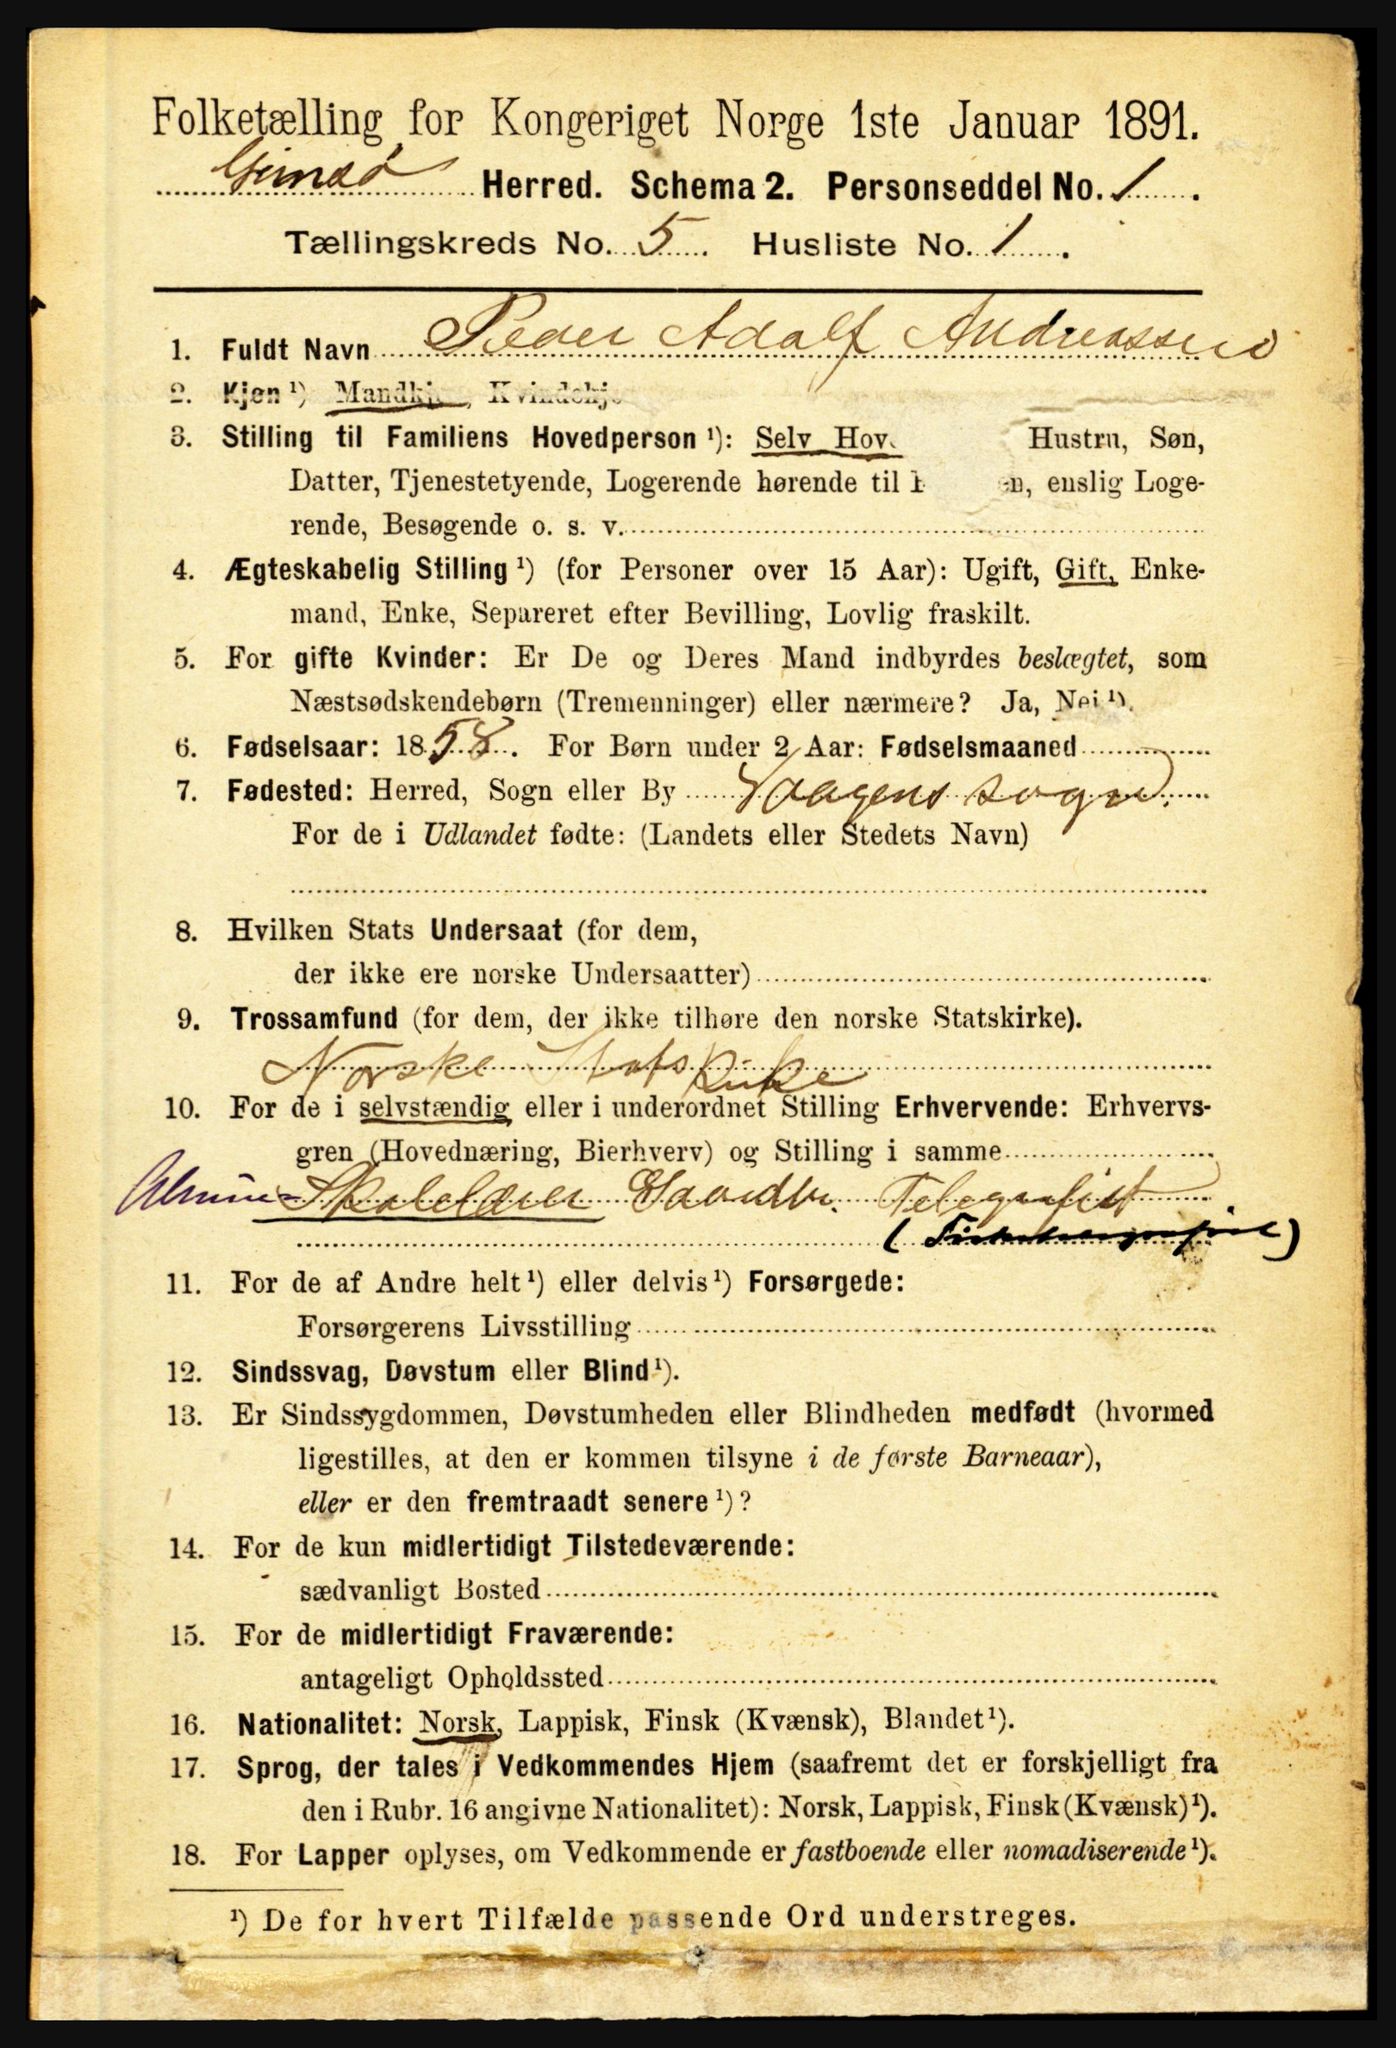 Folketælling for Kongeriget Norge 1ste Januar 1891.
Gimsø Herred. Schema 2. Personseddel No. 1.
Tællingskreds No. 5. Husliste No. 1.
1. Fuldt Navn Peder Adolf Andreassen
2. Kjøn ¹) Mandkj, Kvindekjø
3. Stilling til Familiens Hovedperson ¹): Selv Hov. Hustru, Søn,
Datter, Tjenestetyende, Logerende hørende til en, enslig Loge-
rende, Besøgende o. s. v.
4. Ægteskabelig Stilling ¹) (for Personer over 15 Aar): Ugift, Gift, Enke-
mand, Enke, Separeret efter Bevilling, Lovlig fraskilt.
5. For gifte Kvinder: Er De og Deres Mand indbyrdes beslægtet, som
Næstsødskendebørn (Tremenninger) eller nærmere? Ja, Nei ¹).
6. Fødselsaar: 1858. For Børn under 2 Aar: Fødselsmaaned
7. Fødested: Herred, Sogn eller By Vaagens sogn.
For de i Udlandet fødte: (Landets eller Stedets Navn)
8. Hvilken Stats Undersaat (for dem,
der ikke ere norske Undersaatter)
9. Trossamfund (for dem, der ikke tilhøre den norske Statskirke).
Norske Statskirke
10. For de i selvstændig eller i underordnet Stilling Erhvervende: Erhvervs-
gren (Hovednæring, Bierhverv) og Stilling i samme
Almue= Skolelærer Gaardbr. Telegrafist
11. For de af Andre helt ¹) eller delvis ¹) Forsørgede:
Forsørgerens Livsstilling
12. Sindssvag, Døvstum eller Blind ¹).
13. Er Sindssygdommen, Døvstumheden eller Blindheden medfødt (hvormed
ligestilles, at den er kommen tilsyne i de første Barneaar),
eller er den fremtraadt senere ¹)?
14. For de kun midlertidigt Tilstedeværende:
sædvanligt Bosted
15. For de midlertidigt Fraværende:
antageligt Opholdssted
16. Nationalitet: Norsk, Lappisk, Finsk (Kvænsk), Blandet ¹).
17. Sprog, der tales i Vedkommendes Hjem (saafremt det er forskjelligt fra
den i Rubr. 16 angivne Nationalitet): Norsk, Lappisk, Finsk (Kvænsk) ¹).
18. For Lapper oplyses, om Vedkommende er fastboende eller nomadiserende ¹).
¹) De for hvert Tilfælde passende Ord understreges.